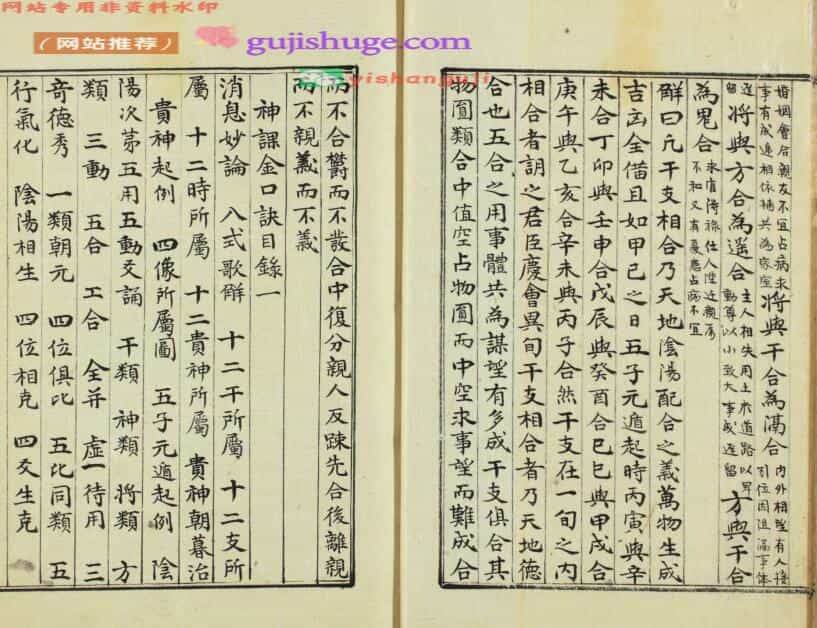 网站专用非资料水印
(网站推荐)
gujishuge.com
yishanguji
婚姻會合親友不宜占病求
事有成進相依補共為家室
將與干合為滿合
內外相望有人接
引位因阻滿事体
遲留
將與方合為遥合
主人相失用土求道路以界
動尊以小致大事成遲留
方與干合
為鬼合
求官得旅住人進近親屬
不和又有憂應占病不宜
觧曰凢干支相合乃天地陰陽配合之義萬物生成
吉凶全備且如甲己之日五子元遁起時丙寅與辛
未合丁卯與壬申合戊辰與癸酉合己巳與甲戌合
庚午與乙亥合辛未與丙子合然干支在一旬之内
相合者謂之君臣慶會異旬干支相合者乃天地德
合也五合之用事體共為謀望有多成干支俱合其
物圓類合中值空占物圓而中空求事望而難成合
而不合欝而不發合中復分親人反踈先合後離親
而不親義而不義
神課金口訣目錄一
消息妙論 八式歌觧 十二干所屬 十二支所
屬 十二時所屬 十二貴神所屬 貴神朝暮治
貴神起例 四像所屬圖 五子元遁起例 陰
陽次第五用五動爻誦 干類 神類 將類 方
類 三動 五合 工合 全并 虛一待用 三
竒德秀 一類朝元 四位俱比 五比同類 五
行氣化 陰陽相生 四位相克 四爻生克